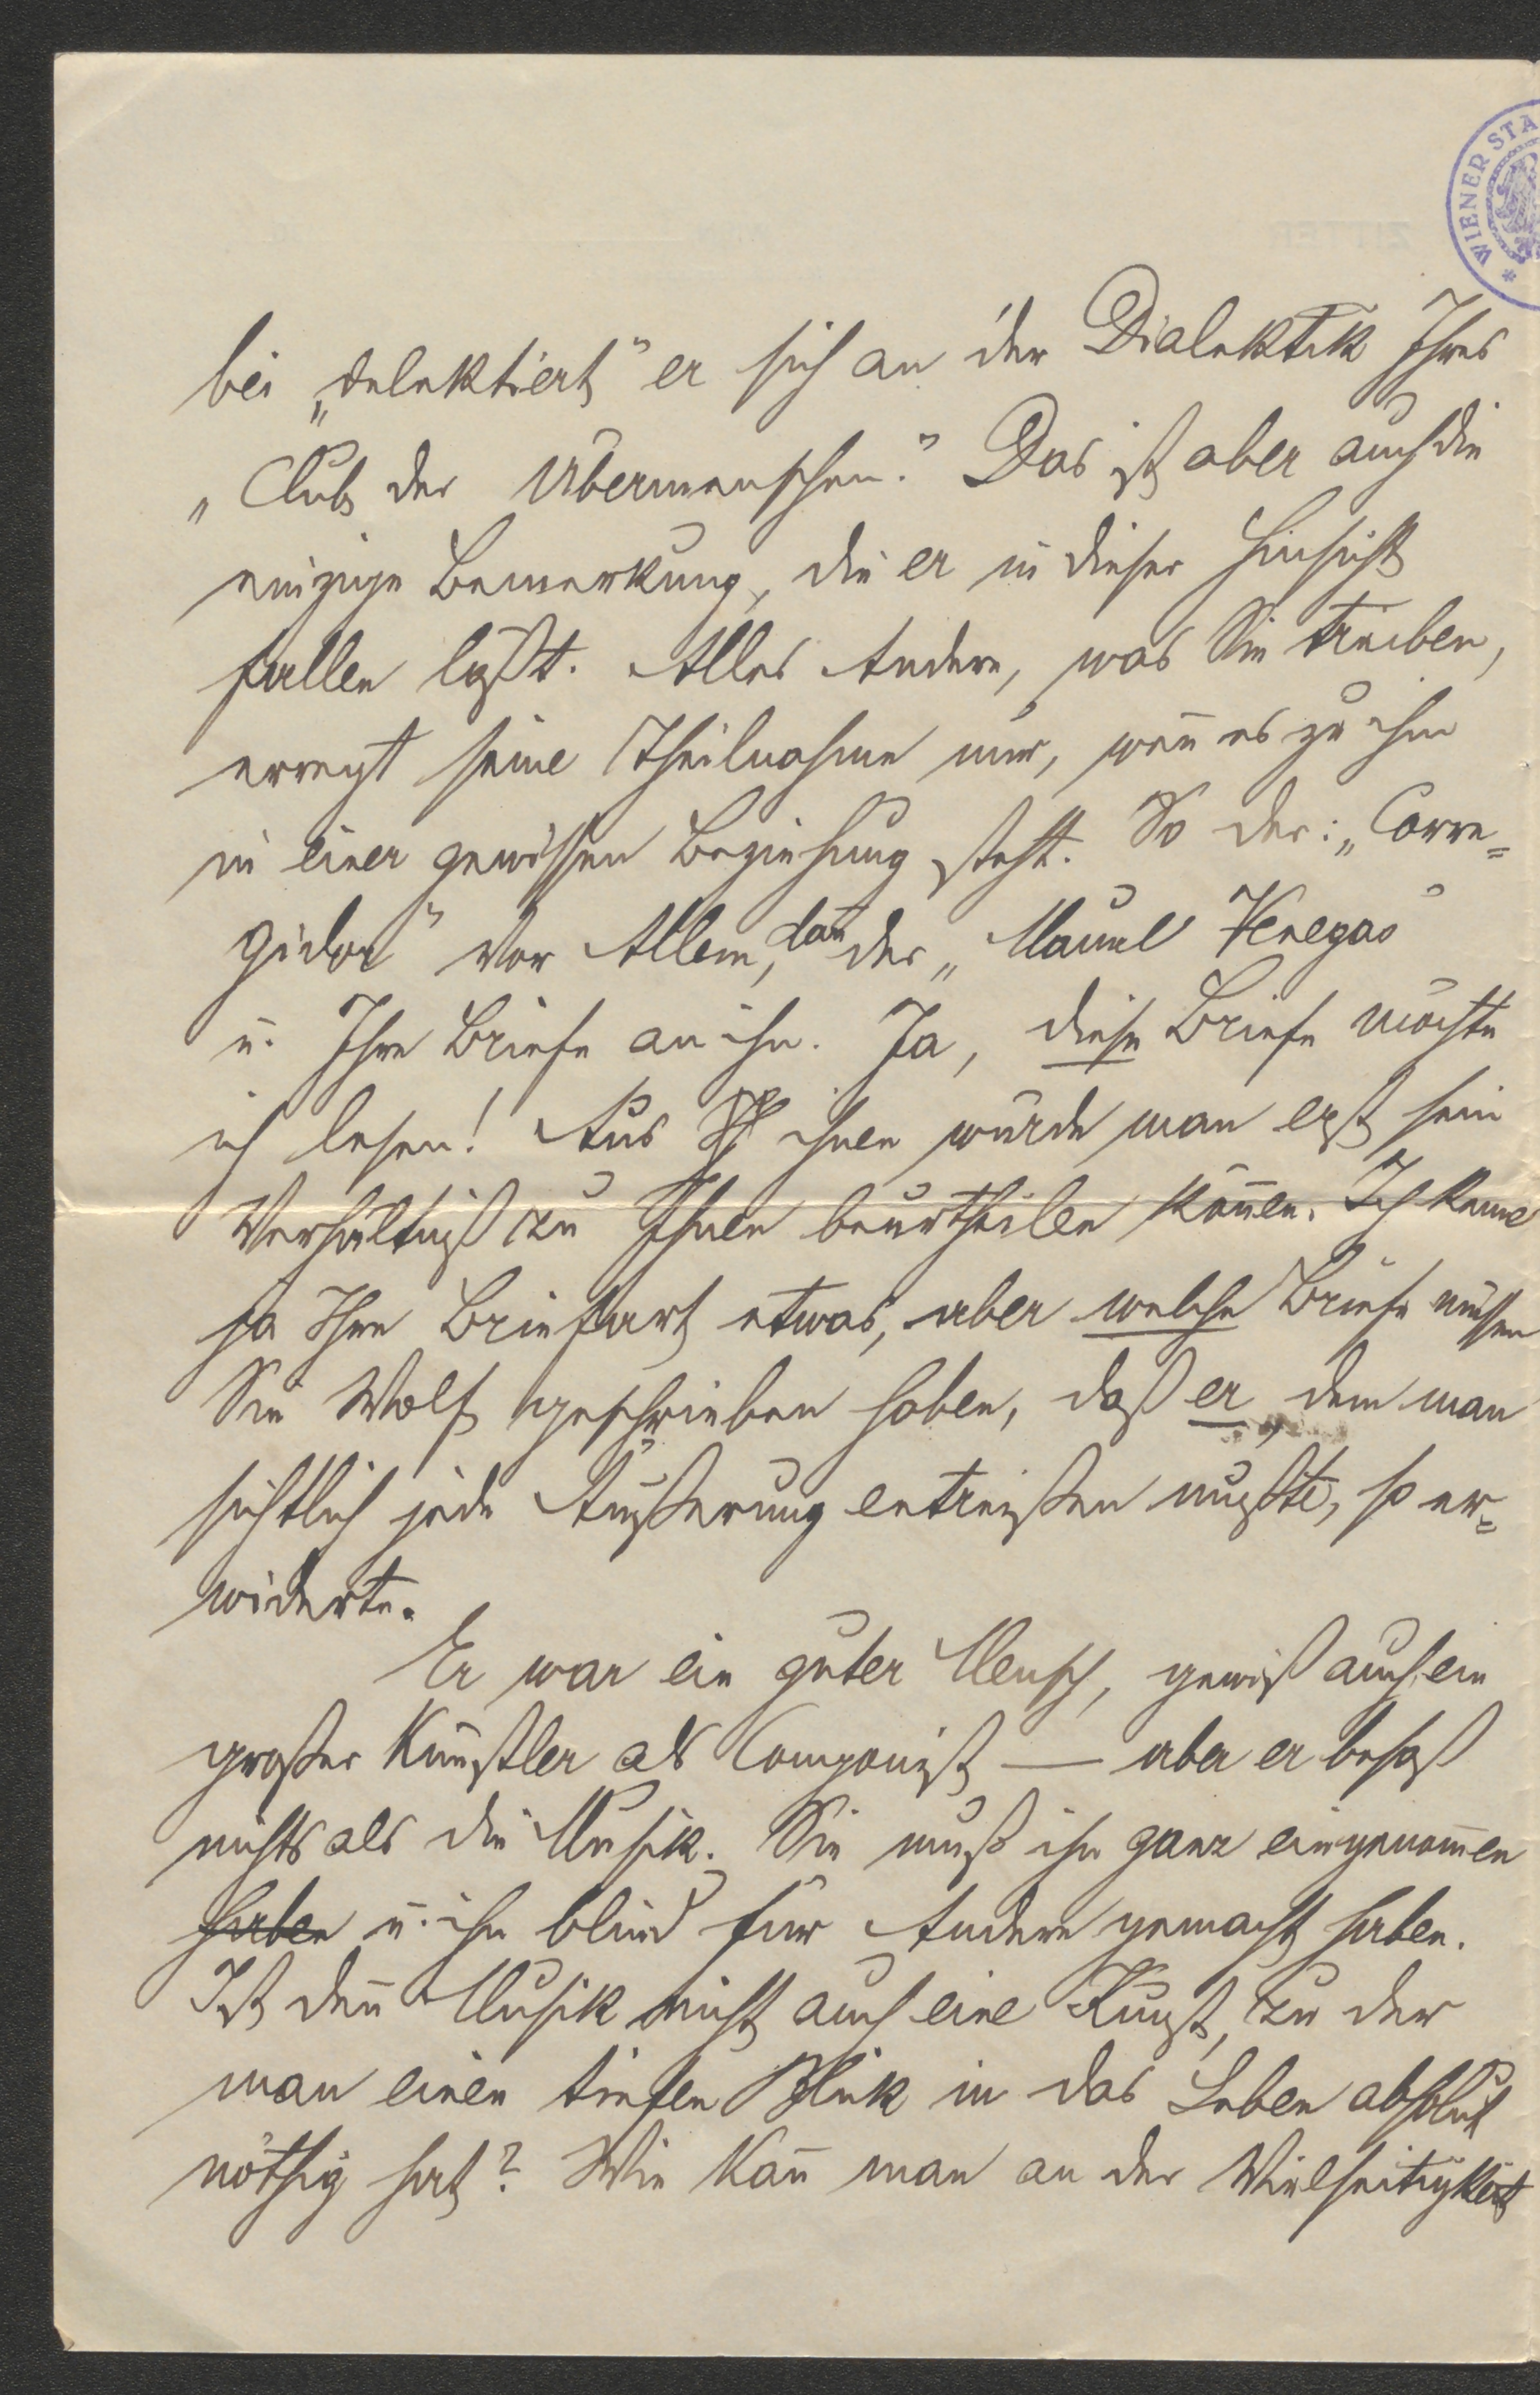 WIENER STA
bei „delektiert" er sich an der Dialektik Ihres
„Club der Übermenschen." Das ist aber auch die
einzige Bemerkung, die er in dieser Hinsicht
fallen läßt. Alles Andere, was Sie treiben,
erregt seine Theilnahme nur, wen̄ es zu ihm
in einer gewissen Beziehung steht. So der: „Corre=
gidor" vor Allem, dan̄ der „Manuel Venegas"
u. Ihre Briefe an ihn. Ja, diese Briefe möchte
ich lesen! Aus ihnen würde man erst sein
Verhältniß zu Ihnen beurtheilen kön̄en. Ich kenne
ja Ihre Briefart etwas, aber welche Briefe müssen
Sie Wolf geschrieben haben, daß er, dem man
sichtlich jede Äußerung entreißen mußte, so er=
widerte.
Er war ein guter Mensch, gewiß auch ein
großer Künstler als Componist — aber er besaß
nichts als die Musik. Sie muß ihn ganz eingenom̄en
haben u. ihn blind für Andere gemacht haben.
Ist den̄ Musik nicht auch eine Kunst, zu der
man einen tiefen Blick in das Leben absolut
nöthig hat? Wie kan̄ man an der Vielseitigkeit